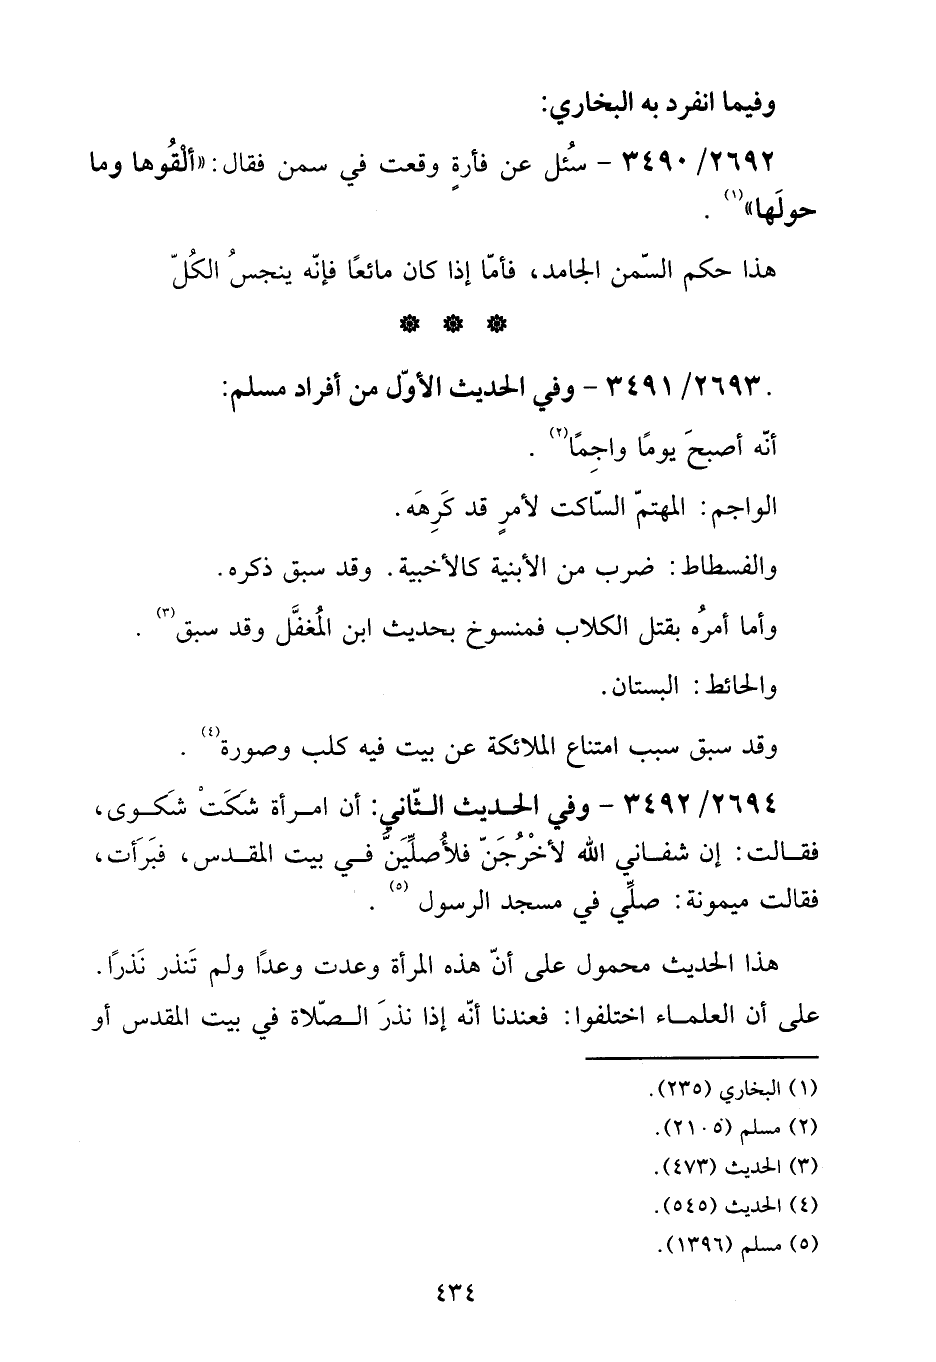 وفيما انفرد به البخاري:
٢٦٩٢/ ٣٤٩٠ - سُئل عن فأرةٍ وقعت في سمن فقال: «ألْقُوها وما
حولَها»(١) .
هذا حكم السّمن الجامد، فأمّا إذا كان مائعًا فإنّه ينجسُ الكُلّ
* * *
. ٢٦٩٣/ ٣٤٩١ - وفي الحديث الأوّل من أفراد مسلم:
أنّه أصبحَ يومًا واجِمًا(٢) .
الواجم: المهتمّ السّاكت لأمرٍ قد كَرِهَه.
والفسطاط: ضرب من الأبنية كالأخبية. وقد سبق ذكره.
وأما أمرُه بقتل الكلاب فمنسوخ بحديث ابن المُغفَّل وقد سبق(٣) .
والحائط: البستان.
وقد سبق سبب امتناع الملائكة عن بيت فيه كلب وصورة(٤) .
٢٦٩٤/ ٣٤٩٢ - وفي الحديث الثّاني: أن امرأة شكَتْ شكوى،
فقالت: إن شفاني الله لأخْرُجَنّ فلأُصلِّيَنَّ في بيت المقدس، فبَرَأت،
فقالت ميمونة: صلِّي في مسجد الرسول (٥) .
هذا الحديث محمول على أنّ هذه المرأة وعدت وعدًا ولم تَنذر نَذرًا.
على أن العلماء اختلفوا: فعندنا أنّه إذا نذرَ الصّلاة في بيت المقدس أو
(١) البخاري (٢٣٥).
(٢) مسلم (٢١٠٥).
(٣) الحديث (٤٧٣).
(٤) الحديث (٥٤٥).
(٥) مسلم (١٣٩٦).
٤٣٤